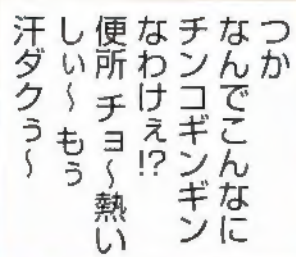 つか
なんでこんなに
チンコギンギン
なわけぇ!?
便所 チョ〜熱い
しぃ〜 もぅ
汗ダクぅ〜